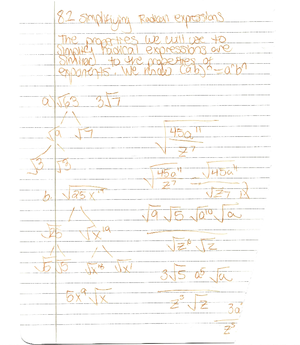 8.2 simplifying Radical expressions
The properties we will use to
simplify radical expressions are
similar to the properties of
exponents. We know (ab)ⁿ=aⁿbⁿ
a. √63 3√7
√9 √7
√3 √3
b. √25x¹⁹
√25 √x¹⁹
√5 √5 √x¹⁸ √x¹
5x⁹√x
√45a¹¹
z⁷
√45a¹¹ √45a¹¹
z⁷ √z⁷
√9 √5 √a¹⁰ √a
√z⁶ √z
3√5 a⁵ √a
z³ √z 3a
z³